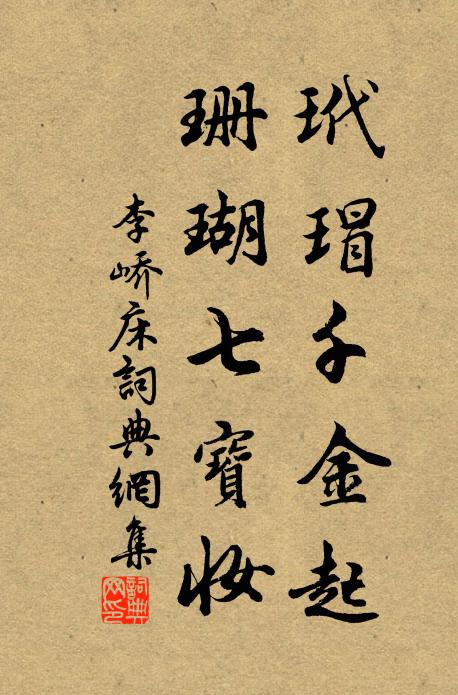 玳瑁千金起
珊瑚七寶妝
李嶠床詞典網集
詞典網印